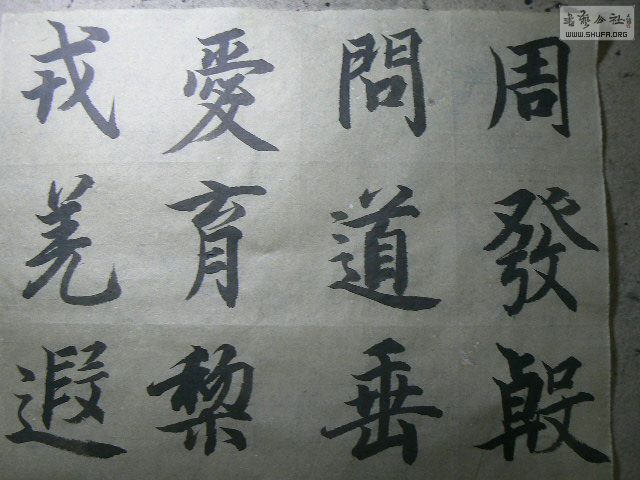 周發殷
問道垂
愛育黎
戎羌遐
书艺公社
WWW.SHUFA.ORG